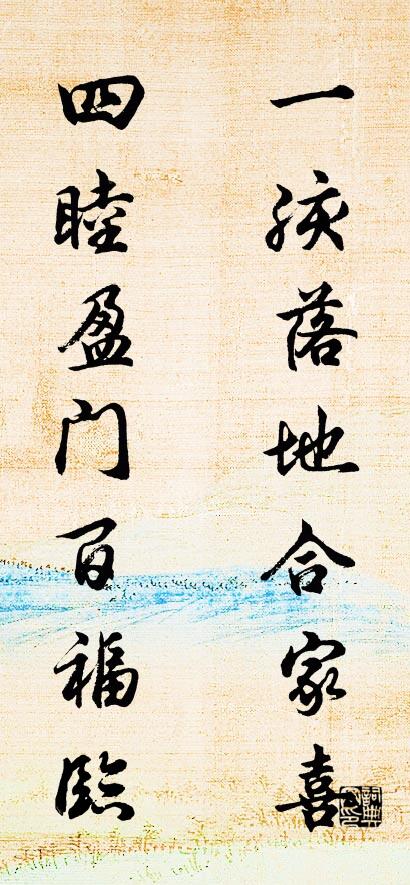 一孩落地合家喜
四睦盈门百福臨